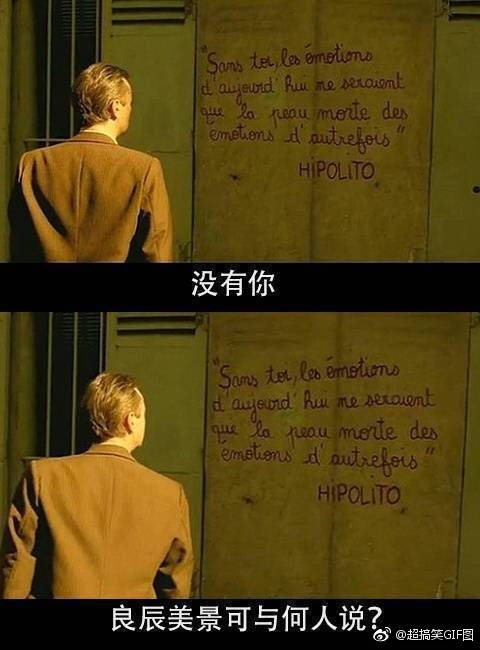 "Sans toi, les émotions
d'aujourd'hui ne seraient
que la peau morte des
émotions d'autrefois"
HiPOLITO
没有你
"Sans toi, les émotions
d'aujourd'hui ne seraient
que la peau morte des
émotions d'autrefois"
HiPOLITO
良辰美景可与何人说?
@超搞笑GIF图